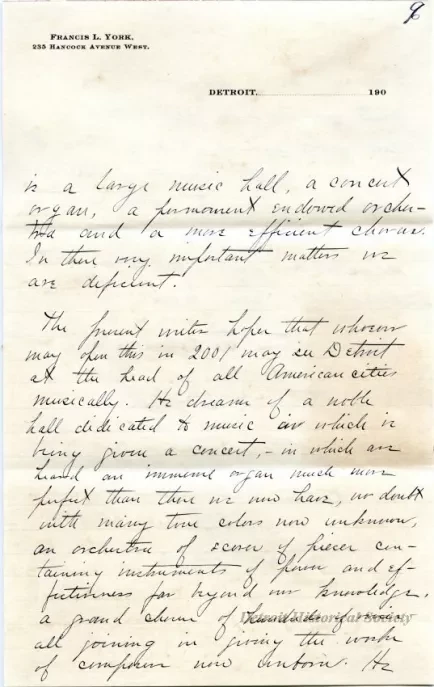 9
FRANCIS L. YORK,
233 HANCOCK AVENUE WEST.
DETROIT, 190
is a large music hall, a concert
organ, a permanent endowed orches-
tra and a more efficient chorus.
In these very important matters we
are deficient.
The present writer hopes that whoever
may open this in 2001 may see Detroit
at the head of all American cities
musically. He dreams of a noble
hall dedicated to music in which is
being given a concert, - in which are
heard an immense organ much more
perfect than those we now have, no doubt
with many tone colors now unknown,
an orchestra of scores of pieces con-
taining instruments of power and ef-
fectiveness far beyond our knowledge,
a grand chorus of hundreds of voices
all joining in giving the works
of composers now unborn. He
Detroit Historical Society